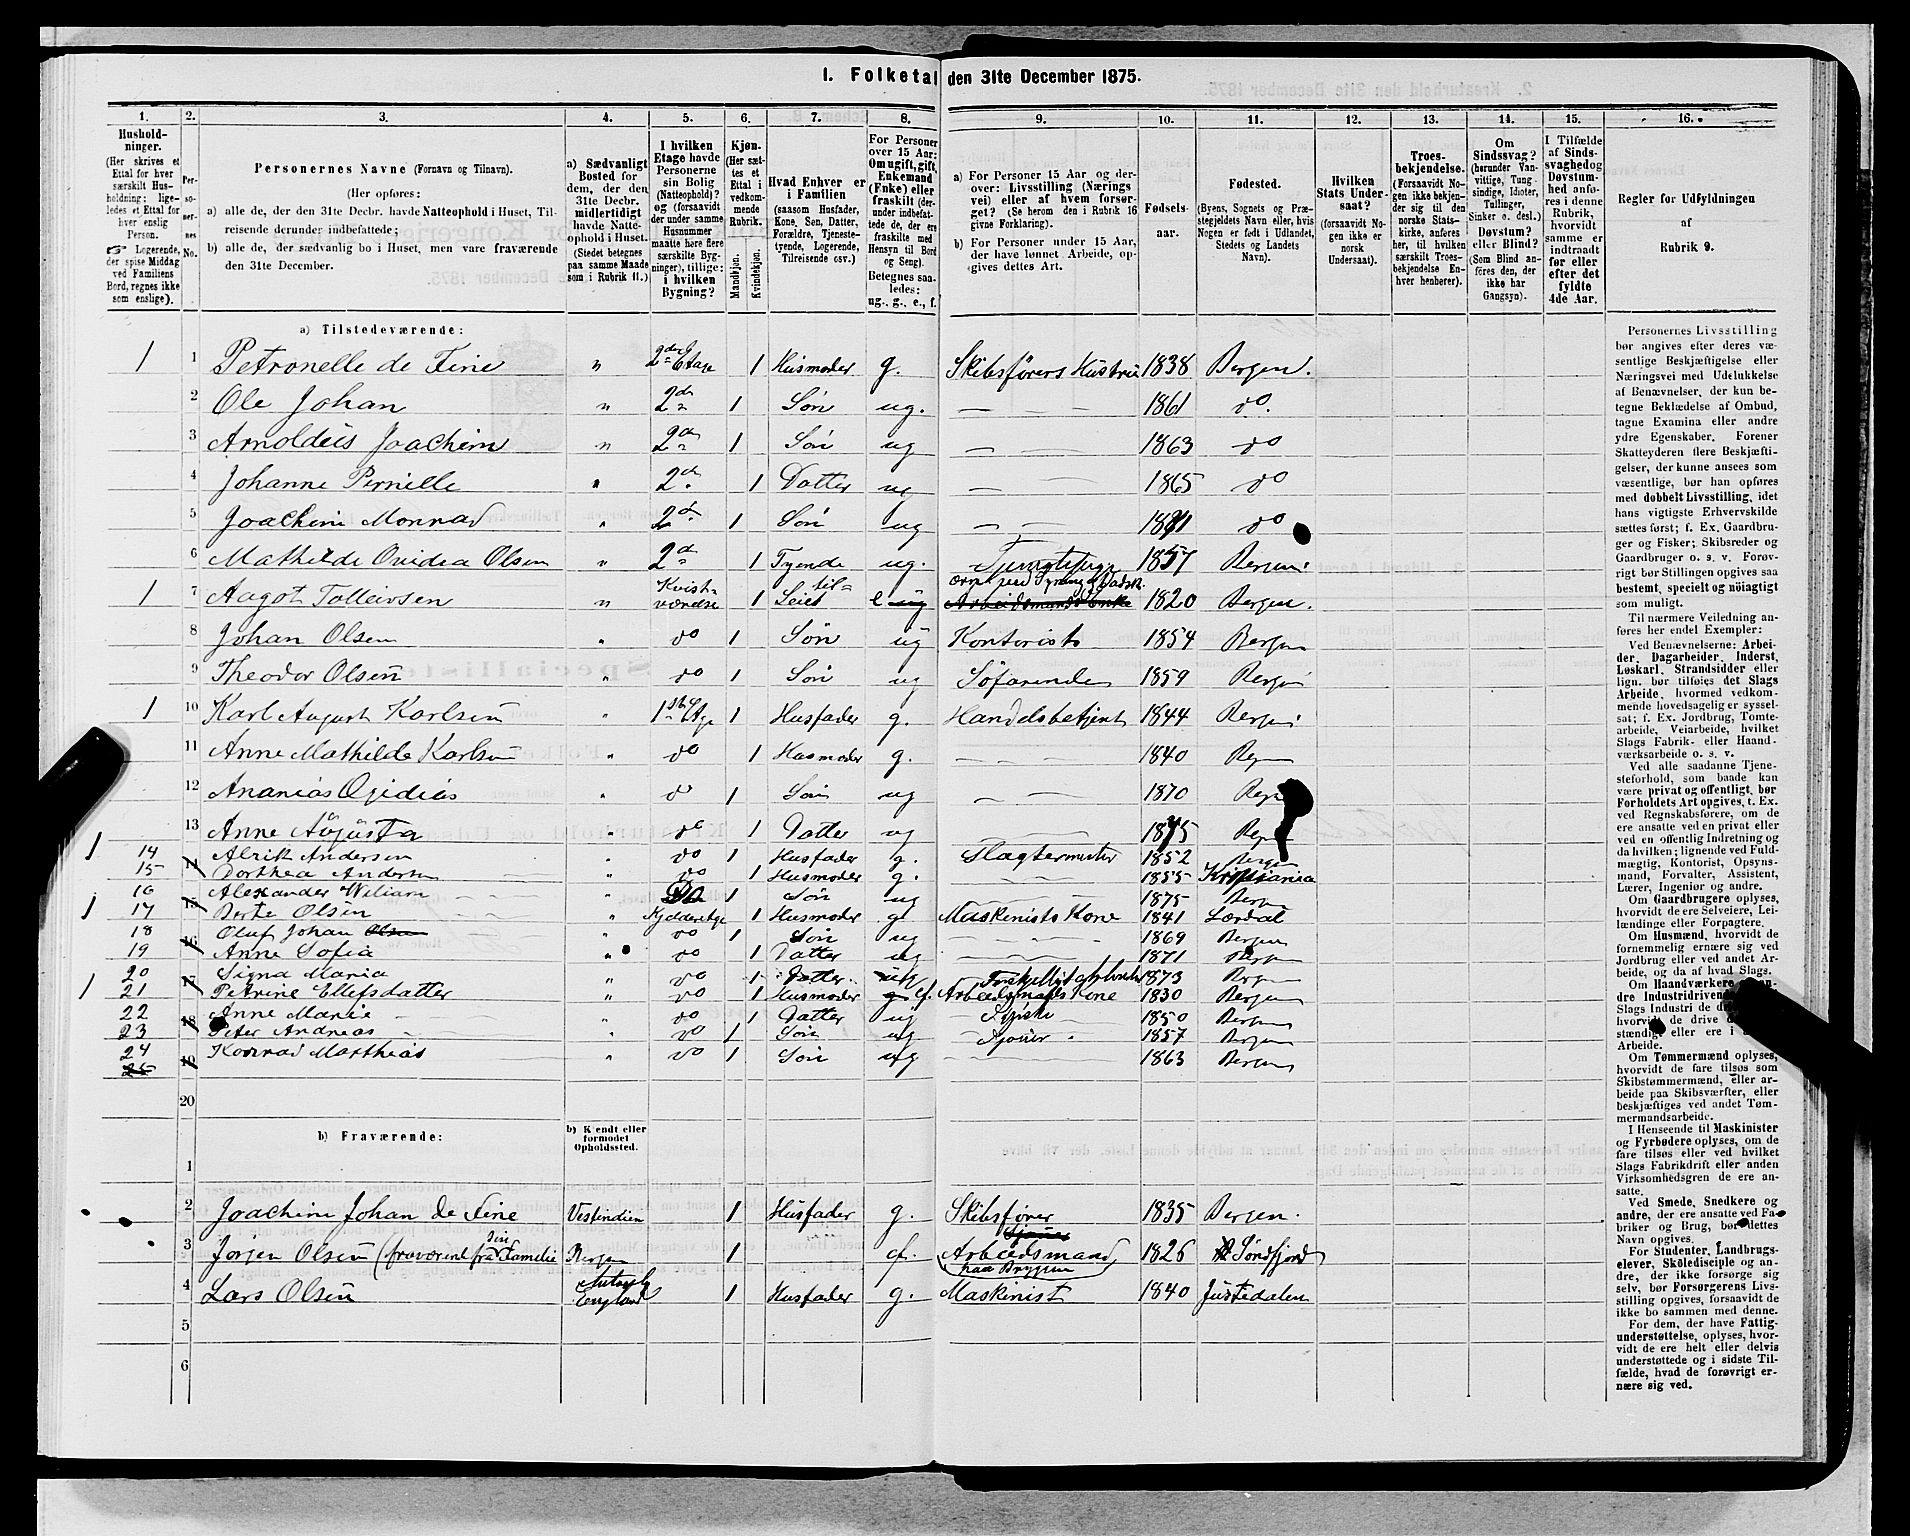 I. Folketal den 31te December 1875.
1. 2. 3. 4. 5. 6. 7. 8. 9. 10. 11. 12. 13. 14. 15. 16.
Hushold-
ninger.
(Her skrives et
Ettal for hver
særskilt Hus-
holdning; lige-
ledes et Ettal for
hver enslig
Person.
☞ Logerende,
der spise Middag
ved Familiens
Bord, regnes ikke
som enslige).
Per-
so-
ner-
nes
No.
Personernes Navne (Fornavn og Tilnavn).
(Her opføres:
a) alle de, der den 31te Decbr. havde Natteophold i Huset, Til-
reisende derunder indbefattede;
b) alle de, der sædvanlig bo i Huset, men vare fraværende
den 31te December.
a) Sædvanligt
Bosted for
dem, der den
31te Decbr.
midlertidigt
havde Natte-
ophold i Huset.
(Stedet betegnes
paa samme Maade
som i Rubrik 11.)
I hvilken
Etage havde
Personerne
sin Bolig
(Natteophold)?
og (forsaavidt
der under samme
Husnummer
maatte høre flere
særskilte Byg-
ninger), tillige:
i hvilken
Bygning?
Kjøn.
(Her sæt-
tes et
Ettal i
vedkom-
mende
Rubrik.
Mandkjøn.
Kvindekjøn.
Hvad Enhver er
i Familien
(saasom Husfader,
Kone, Søn, Datter,
Forældre, Tjeneste-
tyende, Logerende,
Tilreisende osv.)
For Personer
over 15 Aar:
Om ugift, gift,
Enkemand
(Enke) eller
fraskilt (der-
under indbefat-
tede de, der ere
fraskilte med
Hensyn til Bord
og Seng).
Betegnes saa-
ledes:
ug., g., e., f.
a) For Personer 15 Aar og der-
over: Livsstilling (Nærings
vei) eller af hvem forsør-
get? (Se herom den i Rubrik 16
givne Forklaring).
b) For Personer under 15 Aar,
der have lønnet Arbeide, op-
gives dettes Art.
Fødsels-
aar.
Fødested.
(Byens, Sognets og Præ-
stegjeldets Navn eller, hvis
Nogen er født i Udlandet,
Stedets og Landets
Navn).
Hvilken
Stats Under-
saat?
(forsaavidt No-
gen ikke er
norsk
Undersaat).
Troes-
bekjendelse.
(Forsaavidt No-
gen ikke bekjen-
der sig til den
norske Stats-
kirke, anføres
her, til hvilken
særskilt Troes-
bekjendelse En-
hver henhører).
Om
Sindssvag?
(herunder Van-
vittige, Tung-
sindige, Idioter,
Tullinger,
Sinker o. desl.)
Døvstum?
eller Blind?
(Som Blind an-
føres den, der
ikke har
Gangsyn).
I Tilfælde
af Sinds-
svaghed og
Døvstum-
hed anfø-
res i denne
Rubrik,
hvorvidt
samme er
indtraadt
før eller
efter det
fyldte
4de Aar.
Regler for Udfyldningen
af
Rubrik 9.
a) Tilstedeværende:
1 1 Petronelle de Fine " 2den Etage 1 Husmoder g. Skibsførers Hustru 1838 Bergen.
2 Ole Johan " 2den 1 Søn ug. — — — 1861 do.
3 Arnoldus Joachim " 2den 1 Søn ug — — — 1863 do
4 Johanne Pernille " 2den 1 Datter ug — — — 1865 do
5 Joachim Monrad " 2den 1 Søn ug — — — 1871 do
6 Mathilde Ovidea Olsen " 2den 1 Tyende ug. Tjenestepige 1857 Bergen.
1 7 Aagot Tolleivsen " Kvist-værelse 1 til Leies e ug Arbeidsmands Enke 1820 Bergen.
8 Johan Olsen " do 1 Søn ug Kontorist 1854 Bergen
9 Theodor Olsen " do 1 Søn ug Søfarende 1859 Bergen
1 10 Karl August Karlsen " 1ste Etge 1 Husfader g. Handelsbetjent 1844 Bergen
11 Anne Mathilde Karlsen " do 1 Husmoder g. — — — 1840 Bergen
12 Ananias Ogidius " do 1 Søn ug — — — 1870 Bergen
13 Anne Augusta " do 1 Datter ug 1875 Bergen
1 14 Alrik Andersen " do 1 Husfader g. Slagtermester 1852 Bergen
15 14 Dorthea Andersen " do 1 Husmoder g. 1855 Kristiania
16 Alexander Wiliam " Do 1 Søn ug 1875 Bergen
1 17 15 Berte Olsen " Kjelderetge 1 Husmoder g Maskinists Kone 1841 Lærdal
18 Oluf Johan Olsen " do 1 Søn ug 1869 Bergen
19 16 Anne Sofia " do 1 Datter ug 1871 Bergen
20 Signa Maria " do 1 Datter ug 1873 Bergen
1 21 17 Petrine Ellefsdatter " do 1 Husmoder g ef. Forskjelligt Arbeide Arbeidsmands Kone 1830 Bergen
22 Anne Marie " do 1 Datter ug 1850 Bergen
23 18 Peter Andreas " do 1 Søn ug 1857 Bergen
24 Konrad Marthias " do 1 Søn ug 1863 Bergen
25 19
20
b) Fraværende:
b) Kjendt eller
formodet
Opholdssted.
1
2 Joachim Johan de Fine Vestindien 1 Husfader g. Skibsfører 1835 Bergen.
3 Jørgen Olsen (fraværende fra sin Familie Bergen 1 Arbeidsmand paa Bryggen 1826 Søndfjord
4 Lars Olsen England 1 Husfader g. Maskinist 1840 Justedalen
5
6
Personernes Livsstilling
bør angives efter deres væ-
sentlige Beskjæftigelse eller
Næringsvei med Udelukkelse
af Benævnelser, der kun be-
tegne Beklædelse af Ombud,
tagne Examina eller andre
ydre Egenskaber. Forener
Skatteyderen flere Beskjæfti-
gelser, der kunne ansees som
væsentlige, bør han opføres
med dobbelt Livsstilling, idet
hans vigtigste Erhvervskilde
sættes først; f. Ex. Gaardbru-
ger og Fisker; Skibsreder og
Gaardbruger o. s. v. Forøv-
rigt bør Stillingen opgives saa
bestemt, specielt og nöiagtigt
som muligt.
Til nærmere Veiledning an-
føres her endel Exempler:
Ved Benævnelserne: Arbei-
der, Dagarbeider, Inderst,
Løskarl, Strandsidder eller
lign. bør tilføies det Slags
Arbeide, hvormed vedkom-
mende hovedsagelig er syssel-
sat; f. Ex. Jordbrug, Tomte-
arbeide, Veiarbeide, hvilket
Slags Fabrik- eller Haand-
værksarbeide o. s. v.
Ved alle saadanne Tjene-
steforhold, som baade kan
være privat og offentligt, bør
Forholdets Art opgives, t. Ex.
ved Regnskabsførere, om de
ere ansatte ved en privat eller
ved en offentlig Indretning og
da hvilken; lignende ved Fuld-
mægtig, Kontorist, Opsyns-
mand, Forvalter, Assistent,
Lærer, Ingeniør og andre.
Om Gaardbrugere oplyses,
hvorvidt de ere Selveiere, Lei-
lændinge eller Forpagtere.
Om Husmænd, hvorvidt de
fornemmelig ernære sig ved
Jordbrug eller ved andet Ar-
beide, og da af hvad Slags.
Om Haandværkere
dre Industridrivende
Slags Industri de
hvorvidt de drive
stændig eller ere i
Arbeide.
Om Tømmermænd oplyses,
hvorvidt de fare tilsøs som
Skibstømmermænd, eller ar-
beide paa Skibsværfter, eller
beskjæftiges ved andet Tøm-
mermandsarbeide.
I Henseende til Maskinister
og Fyrbødere oplyses, om de
fare tilsøs eller ved hvilket
Slags Fabrikdrift eller anden
Virksomhedsgren de ere an-
satte.
Ved Smede, Snedkere og
andre, der ere ansatte ved Fa-
briker og Brug, bør dettes
Navn opgives.
For Studenter, Landbrugs-
elever, Skoledisciple og an-
dre, der ikke forsørge sig
selv, bør Forsørgerens Livs-
stilling opgives, forsaavidt de
ikke bo sammen med denne.
For dem, der have Fattig-
understøttelse, oplyses, hvor-
vidt de ere helt eller delvis
understøttede og i sidste Til-
fælde, hvad de forøvrigt er-
nære sig ved.